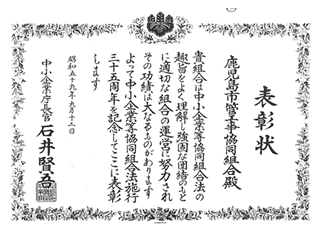 表彰状
鹿児島市管工事協同組合殿
貴組合は中小企業等協同組合法の
趣旨をよく理解し強固な団結のもと
に適切な組合の運営に努力され
その功績は大なるものがあります
よって中小企業等協同組合法施行
三十五周年を記念してここに表彰
します
昭和五十九年九月十二日
中小企業庁長官 石井賢吾